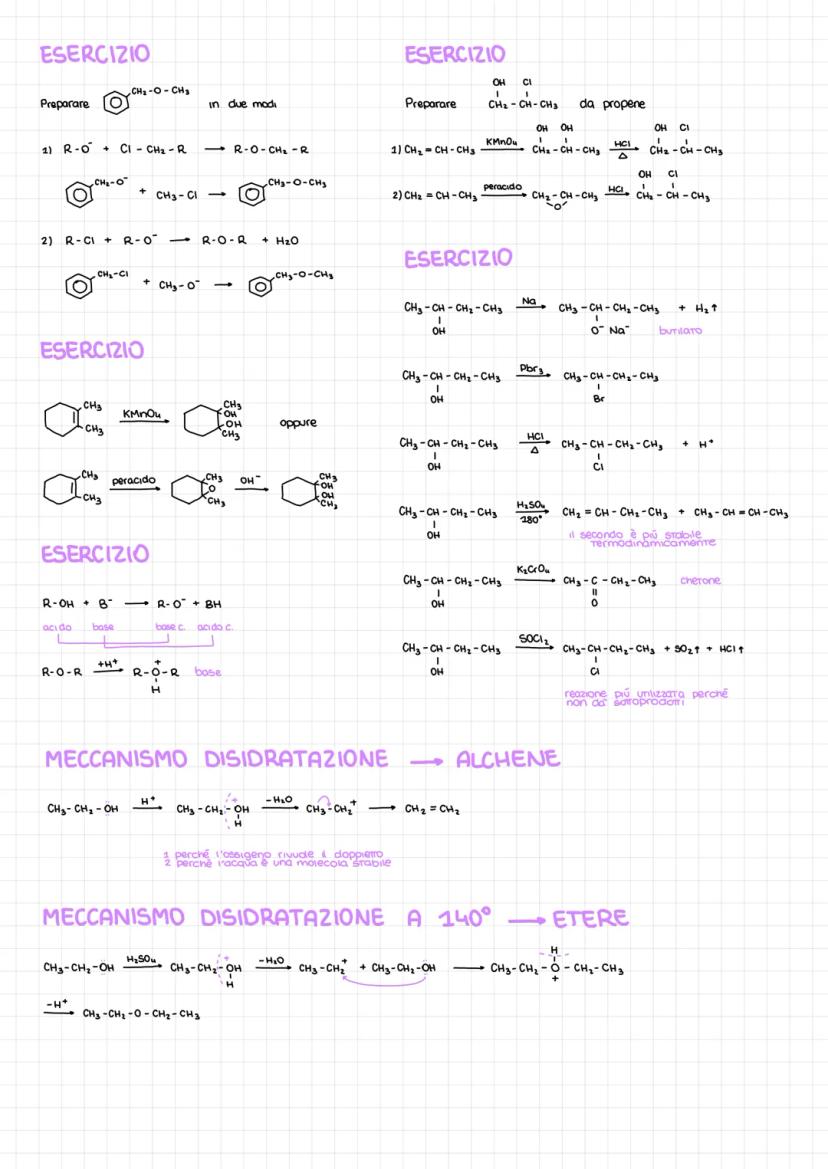 ESERCIZIO
Preparare CH₂-O-CH₃ in due modi
1) R-O⁻ + Cl-CH₂-R ⟶ R-O-CH₂-R
CH₂-O⁻ + CH₃-Cl ⟶ CH₃-O-CH₃
2) R-Cl + R-O⁻ ⟶ R-O-R + H₂O
CH₂-Cl + CH₃-O⁻ ⟶ CH₃-O-CH₃
ESERCIZIO
CH₃
CH₃
KMnO₄
CH₃
OH
OH
CH₃
oppure
CH₃
CH₃
peracido
CH₃
O
CH₃
OH⁻
CH₃
OH
OH
CH₃
ESERCIZIO
R-OH + B⁻ ⟶ R-O⁻ + BH
acido base base c. acido c.
+H⁺ +
R-O-R ⟶ R-O-R base
H
ESERCIZIO
OH Cl
Preparare CH₂-CH-CH₃ da propene
OH OH OH Cl
1) CH₂=CH-CH₃ KMnO₄ ⟶ CH₂-CH-CH₃ HCl ⟶ Δ CH₂-CH-CH₃
OH Cl
2) CH₂=CH-CH₃ peracido ⟶ CH₂-CH-CH₃ HCl ⟶ CH₂-CH-CH₃
O
ESERCIZIO
CH₃-CH-CH₂-CH₃ Na ⟶ CH₃-CH-CH₂-CH₃ + H₂↑
OH O⁻ Na⁻ butilato
CH₃-CH-CH₂-CH₃ Pbr₃ ⟶ CH₃-CH-CH₂-CH₃
OH Br
CH₃-CH-CH₂-CH₃ HCl ⟶ Δ CH₃-CH-CH₂-CH₃ + H⁺
OH Cl
CH₃-CH-CH₂-CH₃ H₂SO₄ ⟶ 180° CH₂=CH-CH₂-CH₃ + CH₃-CH=CH-CH₃
OH il secondo è più stabile
termodinamicamente
CH₃-CH-CH₂-CH₃ K₂CrO₄ ⟶ CH₃-C-CH₂-CH₃ chetone
OH O
CH₃-CH-CH₂-CH₃ SOCl₂ ⟶ CH₃-CH-CH₂-CH₃ + SO₂↑ + HCl↑
OH Cl
reazione più utilizzata perché
non dà sottoprodotti
MECCANISMO DISIDRATAZIONE ⟶ ALCHENE
CH₃-CH₂-OH H⁺ ⟶ CH₃-CH₂-OH⁺ -H₂O ⟶ CH₃-CH₂⁺ ⟶ CH₂=CH₂
H
1 perché l'ossigeno rivuole il doppietto
2 perché l'acqua è una molecola stabile
MECCANISMO DISIDRATAZIONE A 140° ⟶ ETERE
H
CH₃-CH₂-OH H₂SO₄ ⟶ CH₃-CH₂-OH⁺ -H₂O ⟶ CH₃-CH₂⁺ + CH₃-CH₂-OH ⟶ CH₃-CH₂-O-CH₂-CH₃
H +
-H⁺ ⟶ CH₃-CH₂-O-CH₂-CH₃